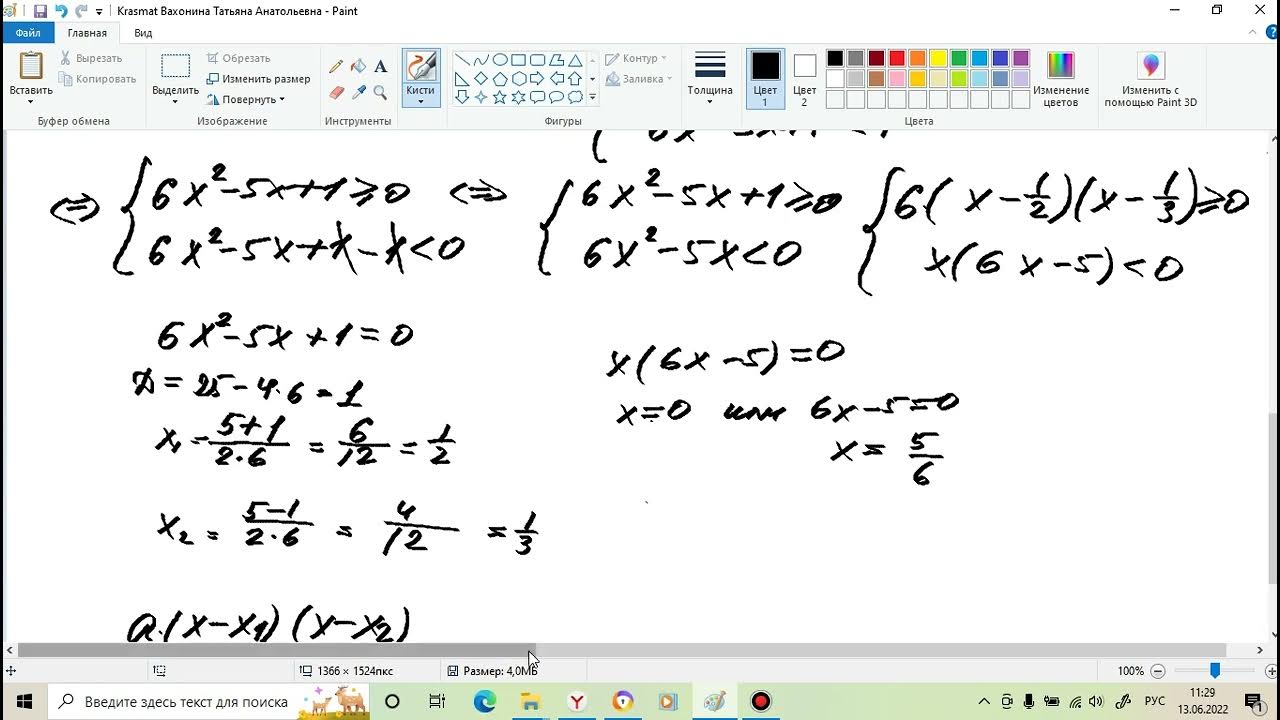 Krasmat Вахонина Татьяна Анатольевна - Paint
Файл Главная Вид
Вставить
Вырезать
Копировать
Буфер обмена
Выделить
Обрезать
Изменить размер
Повернуть
Изображение
A
Инструменты
Кисти
Контур
Заливка
Фигуры
Толщина
Цвет 1
Цвет 2
Цвета
Изменение цветов
Изменить с помощью Paint 3D
⇔ { 6x²-5x+1≥0 ⇔ { 6x²-5x+1≥0 { 6(x-1/2)(x-1/3)≥0
6x²-5x+1-1<0 6x²-5x<0 x(6x-5)<0
6x²-5x+1=0
D=25-4·6=1
x₁=(5+1)/(2·6)=6/12=1/2
x₂=(5-1)/(2·6)=4/12=1/3
a·(x-x₁)(x-x₂)
x(6x-5)=0
x=0 или 6x-5=0
x=5/6
1366 × 1524пкс Размер: 4,0МБ 100%
Введите здесь текст для поиска
РУС
11:29
13.06.2022